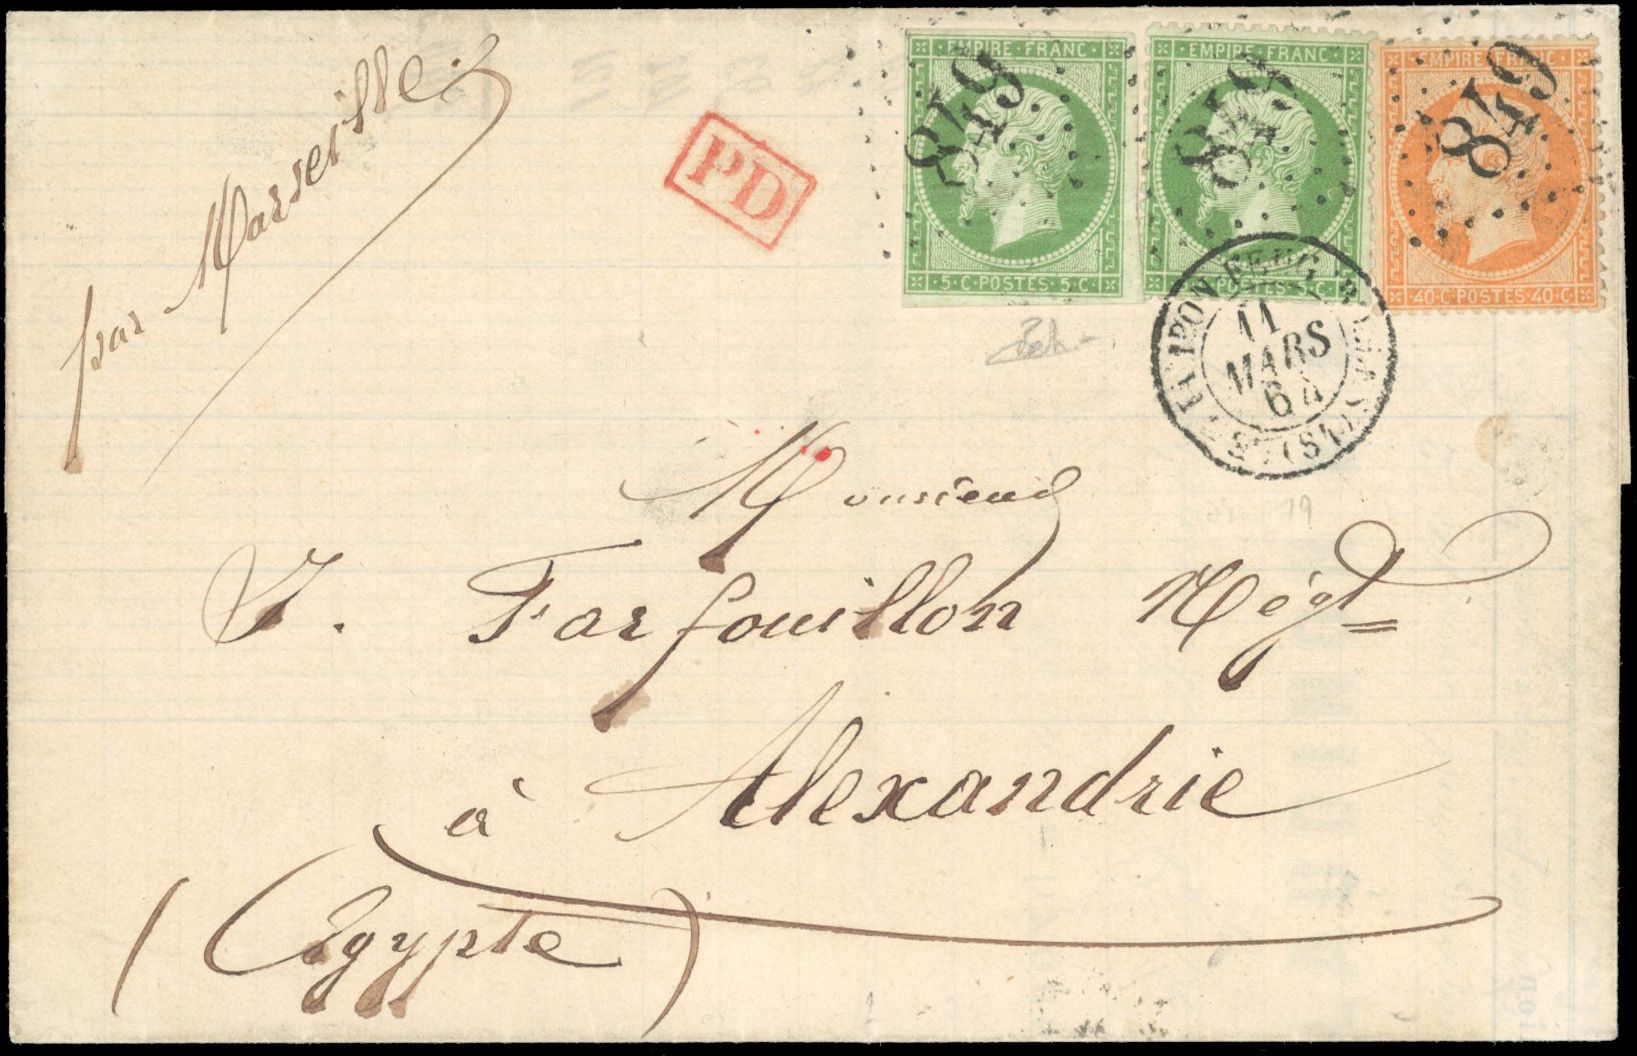 par Marseille
PD
EMPIRE·FRANC
5·C·POSTES·5·C
EMPIRE·FRANC
POSTES·5·C
EMPIRE·FRANC
40·C·POSTES·40·C
849
849
849
11
MARS
64
(84)
Monsieur
J. Farfouillon Négt
à Alexandrie
(Egypte)